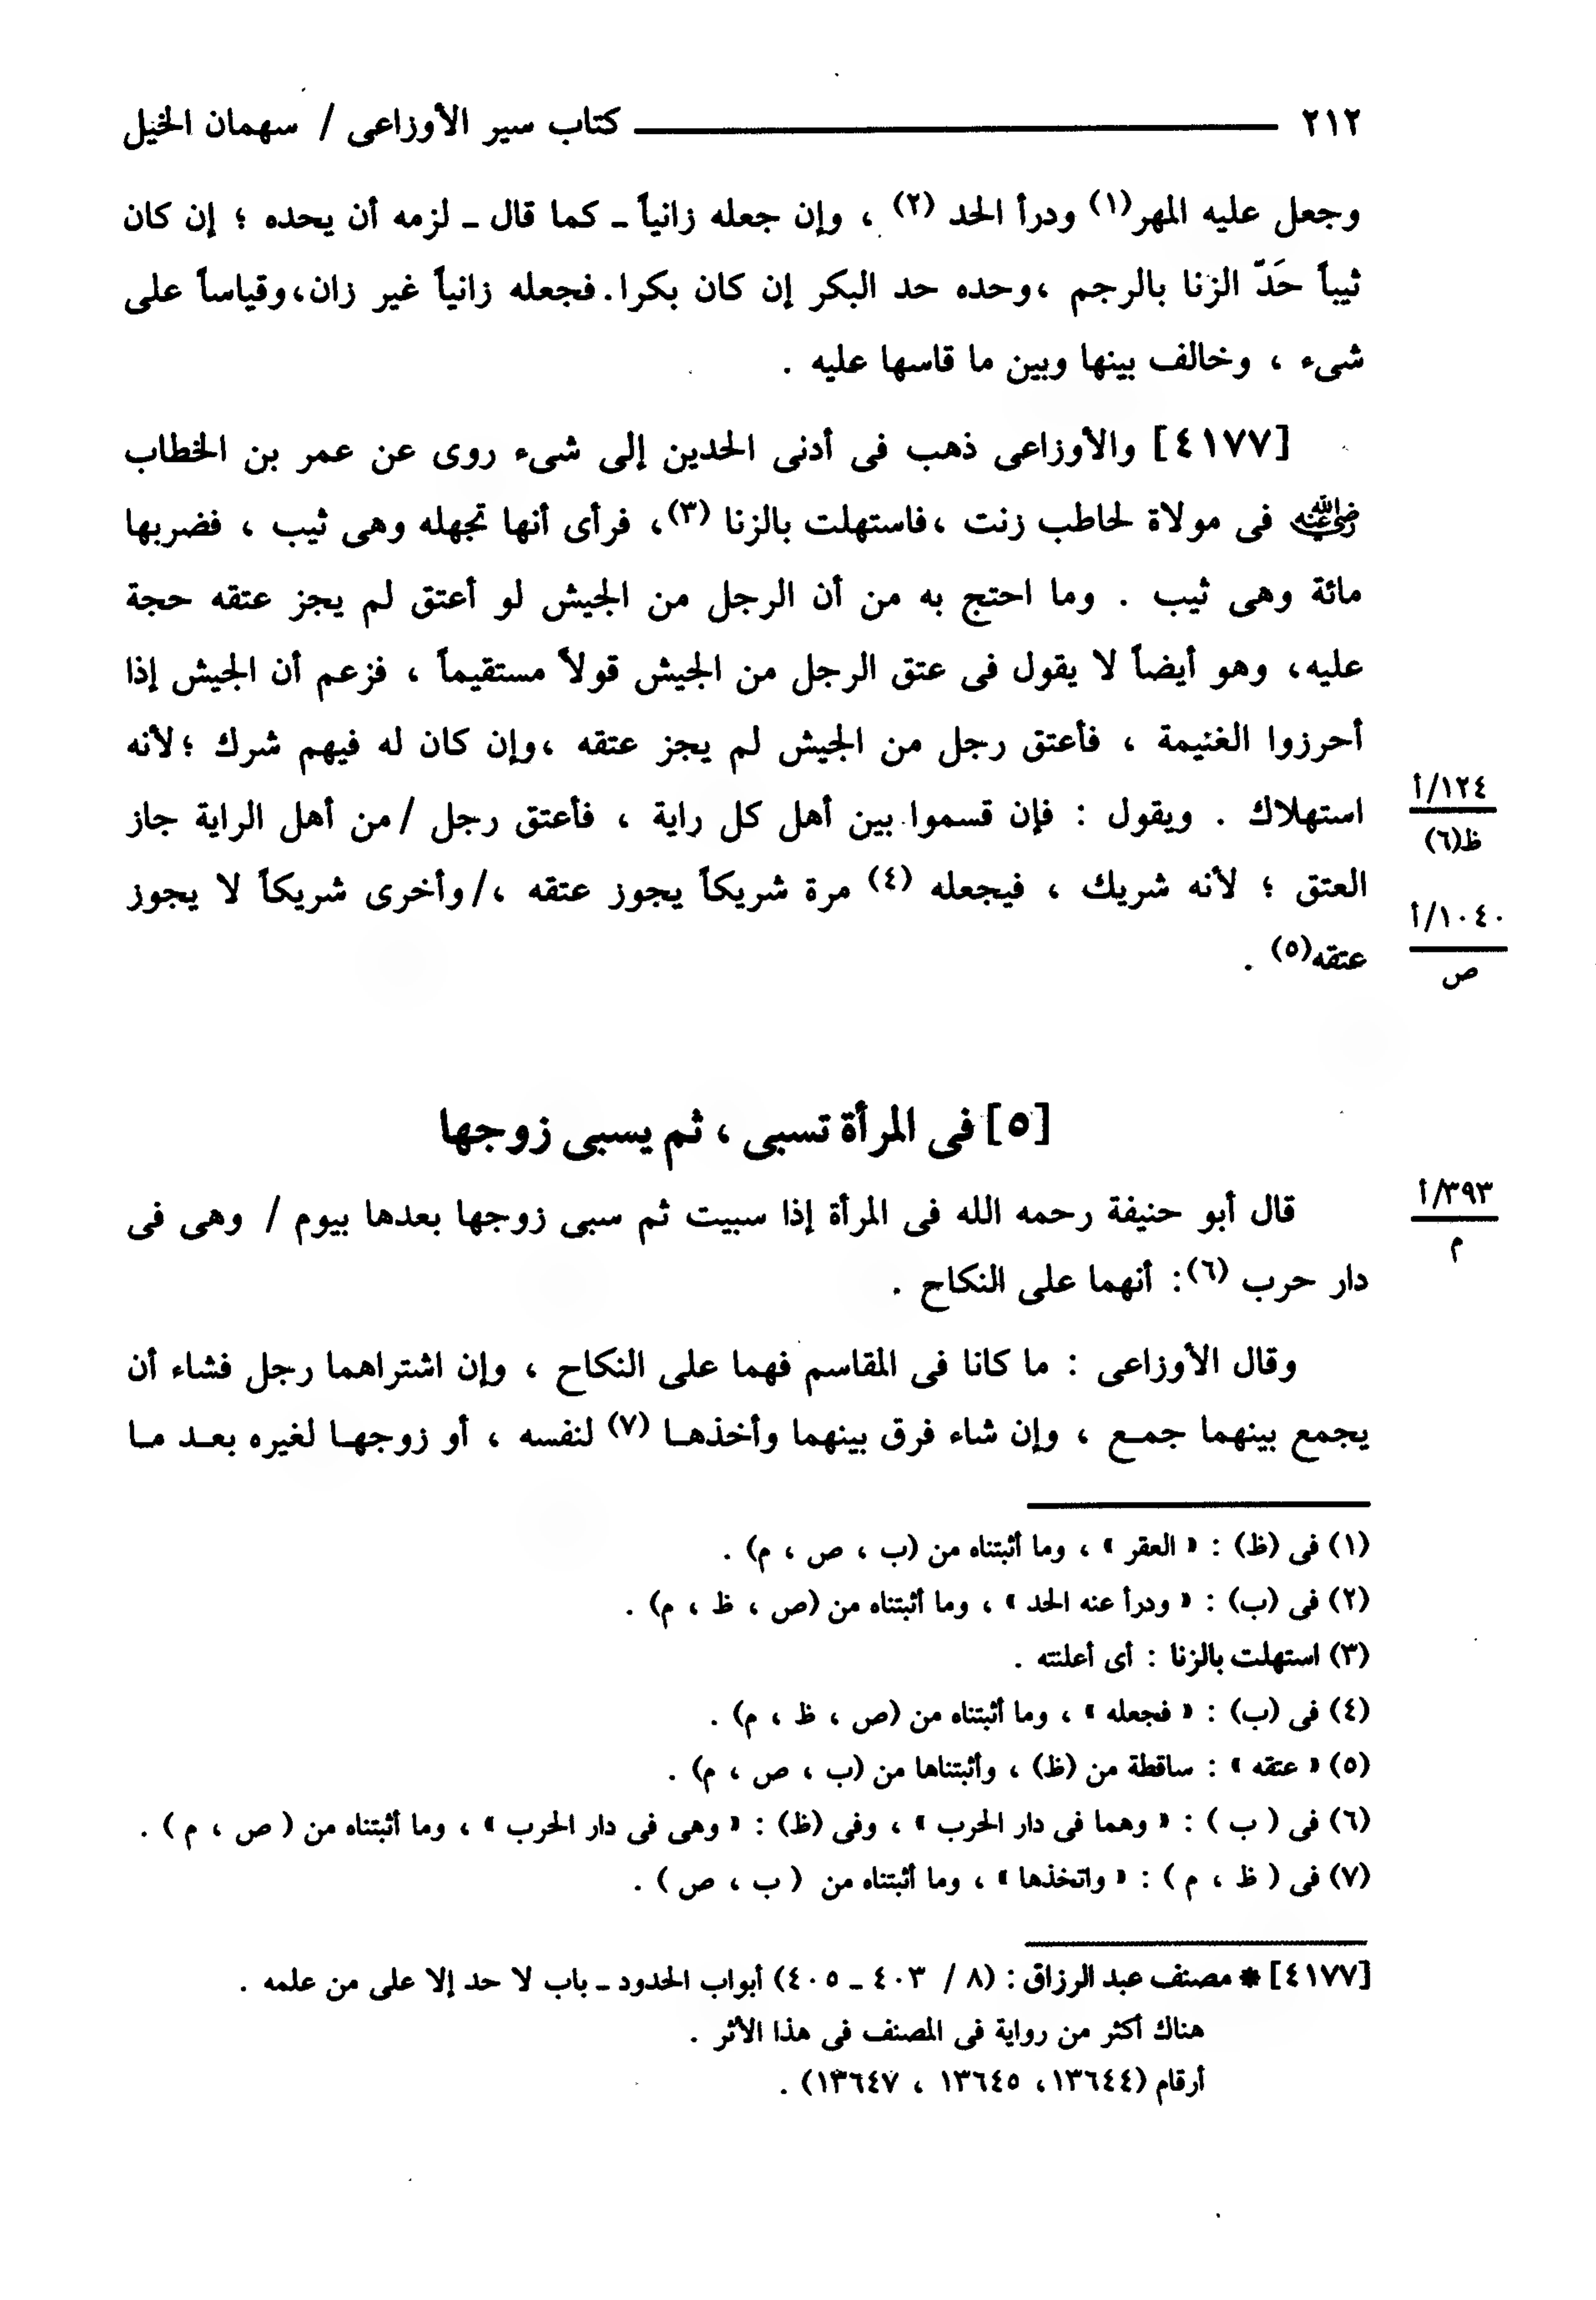 ٢١٢ ــــــ كتاب سير الأوزاعى / سهمان الخيل
وجعل عليه المهر(١) ودرأ الحد (٢) ، وإن جعله زانياً ـ كما قال ـ لزمه أن يحده ؛ إن كان
ثيباً حَدّ الزنا بالرجم ،وحده حد البكر إن كان بكرا.فجعله زانياً غير زان،وقياساً على
شىء ، وخالف بينها وبين ما قاسها عليه .
[٤١٧٧] والأوزاعى ذهب فى أدنى الحدين إلى شىء روى عن عمر بن الخطاب
رضي الله عنه فى مولاة لحاطب زنت ،فاستهلت بالزنا (٣)، فرأى أنها تجهله وهى ثيب ، فضربها
مائة وهى ثيب . وما احتج به من أن الرجل من الجيش لو أعتق لم يجز عتقه حجة
عليه، وهو أيضاً لا يقول فى عتق الرجل من الجيش قولاً مستقيماً ، فزعم أن الجيش إذا
أحرزوا الغنيمة ، فأعتق رجل من الجيش لم يجز عتقه ،وإن كان له فيهم شرك ؛لأنه
استهلاك . ويقول : فإن قسموا بين أهل كل راية ، فأعتق رجل /من أهل الراية جاز
١٢٤/أ
ظ(٦)
العتق ؛ لأنه شريك ، فيجعله (٤) مرة شريكاً يجوز عتقه ،/وأخرى شريكاً لا يجوز
١٠٤٠/أ
ص
عتقه(٥) .
[٥] فى المرأة تسبى ، ثم يسبى زوجها
قال أبو حنيفة رحمه الله فى المرأة إذا سبيت ثم سبى زوجها بعدها بيوم / وهى فى
٣٩٣/أ
م
دار حرب (٦): أنهما على النكاح .
وقال الأوزاعى : ما كانا فى المقاسم فهما على النكاح ، وإن اشتراهما رجل فشاء أن
يجمع بينهما جمـع ، وإن شاء فرق بينهما وأخذهـا (٧) لنفسه ، أو زوجهـا لغيره بعـد مـا
(١) فى (ظ) : « العقر » ، وما أثبتناه من (ب ، ص ، م) .
(٢) فى (ب) : « ودرأ عنه الحد » ، وما أثبتناه من (ص ، ظ ، م) .
(٣) استهلت بالزنا : أى أعلنته .
(٤) فى (ب) : « فجعله » ، وما أثبتناه من (ص ، ظ ، م) .
(٥) « عتقه » : ساقطة من (ظ) ، وأثبتناها من (ب ، ص ، م) .
(٦) فى ( ب ) : « وهما فى دار الحرب » ، وفى (ظ) : « وهى فى دار الحرب » ، وما أثبتناه من ( ص ، م ) .
(٧) فى ( ظ ، م ) : « واتخذها » ، وما أثبتناه من ( ب ، ص ) .
[٤١٧٧] * مصنف عبد الرزاق : (٨ / ٤٠٣ ـ ٤٠٥) أبواب الحدود ـ باب لا حد إلا على من علمه .
هناك أكثر من رواية فى المصنف فى هذا الأثر .
أرقام (١٣٦٤٤، ١٣٦٤٥ ، ١٣٦٤٧) .